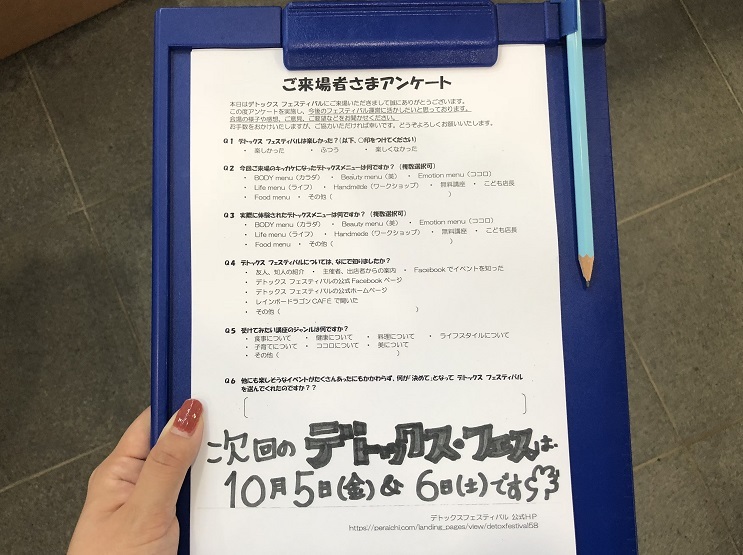 ご来場者さまアンケート
本日はデトックス フェスティバルにご来場いただきまして誠にありがとうございます。
この度アンケートを実施し、今後のフェスティバル運営に活かしたいと思っております。
会場の様子や感想、ご意見、ご要望などをお聞かせください。
お手数をおかけいたしますが、ご協力いただければ幸いです。どうぞよろしくお願いいたします。
Q1 デトックス フェスティバルは楽しかった？(以下、○印をつけてください)
・ 楽しかった ・ ふつう ・ 楽しくなかった
Q2 今回ご来場のキッカケになったデトックスメニューは何ですか？（複数選択可）
・ BODY menu（カラダ） ・ Beauty menu（美） ・ Emotion menu（ココロ）
・ Life menu（ライフ） ・ Handmede（ワークショップ） ・ 無料講座 ・ こども店長
・ Food menu ・ その他（ ）
Q3 実際に体験されたデトックスメニューは何ですか？（複数選択可）
・ BODY menu（カラダ） ・ Beauty menu（美） ・ Emotion menu（ココロ）
・ Life menu（ライフ） ・ Handmede（ワークショップ） ・ 無料講座 ・ こども店長
・ Food menu ・ その他（ ）
Q4 デトックス フェスティバルについては、なにで知りましたか？
・ 友人、知人の紹介 ・ 主催者、出店者からの案内 ・ Facebookでイベントを知った
・ デトックス フェスティバルの公式Facebookページ
・ デトックス フェスティバルの公式ホームページ
・ レインボードラゴンCAFEで聞いた
・ その他（ ）
Q5 受けてみたい講座のジャンルは何ですか？
・ 食事について ・ 健康について ・ 料理について ・ ライフスタイルについて
・ 子育てについて ・ ココロについて ・ 美について
・ その他（ ）
Q6 他にも楽しそうなイベントがたくさんあったにもかかわらず、何が「決めて」となって デトックス フェスティバル
を選んでくれたのですか？？
次回の デトックス・フェスは
10月5日(金)& 6日(土)です
デトックスフェスティバル 公式HP
https://peraichi.com/landing_pages/view/detoxfestival58